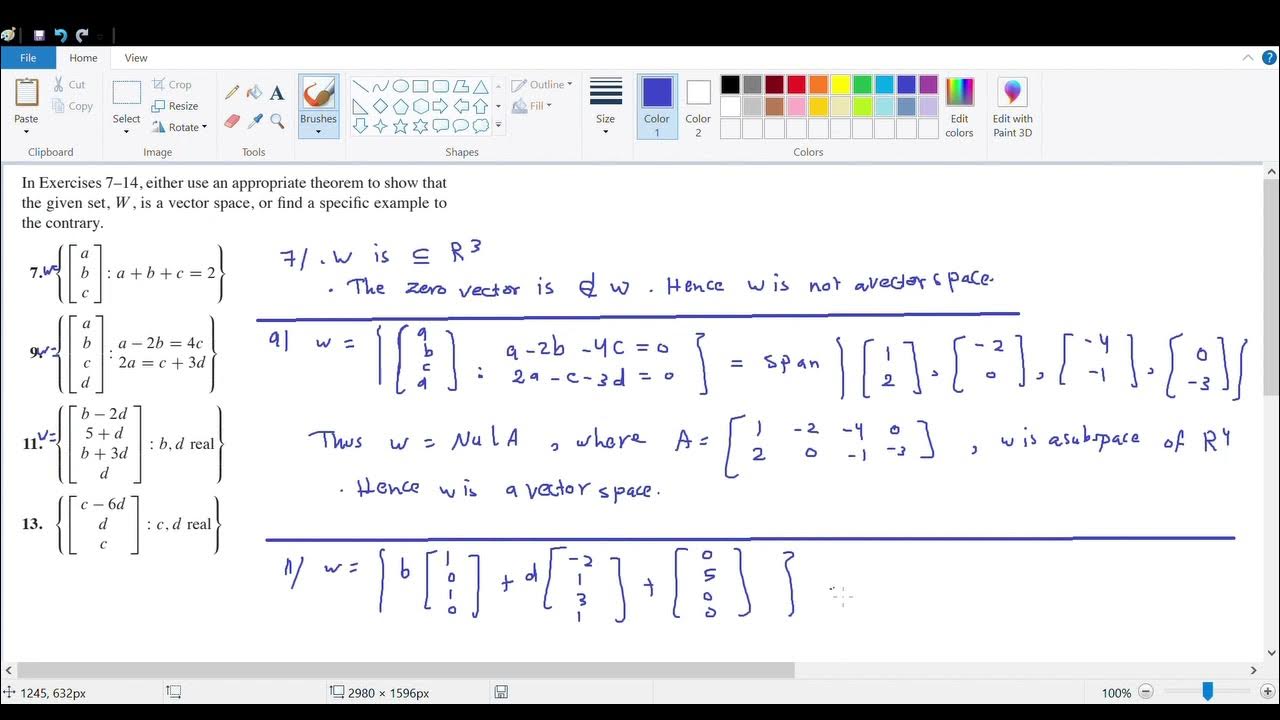 File Home View
Paste
Cut
Copy
Clipboard
Select
Crop
Resize
Rotate
Image
A
Tools
Brushes
Shapes
Outline
Fill
Size
Color 1
Color 2
Colors
Edit colors
Edit with Paint 3D
In Exercises 7–14, either use an appropriate theorem to show that
the given set, W, is a vector space, or find a specific example to
the contrary.
7. W= { [ a b c ] : a + b + c = 2 }
9. W= { [ a b c d ] : a − 2b = 4c 2a = c + 3d }
11. W= { [ b − 2d 5 + d b + 3d d ] : b, d real }
13. { [ c − 6d d c ] : c, d real }
7/ . W is ⊆ R³
. The zero vector is ∉ W . Hence W is not a vector space.
9| W = { [ a b c d ] : a -2b -4c = 0 2a -c -3d = 0 } = span { [ 1 2 ] , [ -2 0 ] , [ -4 -1 ] , [ 0 -3 ] }
Thus W = Nul A , where A = [ 1 -2 -4 0 2 0 -1 -3 ] , W is a subspace of R⁴
. Hence W is a vector space.
11/ W = { b [ 1 0 1 0 ] + d [ -2 1 3 1 ] + [ 0 5 0 0 ] }
1245, 632px
2980 × 1596px
100%